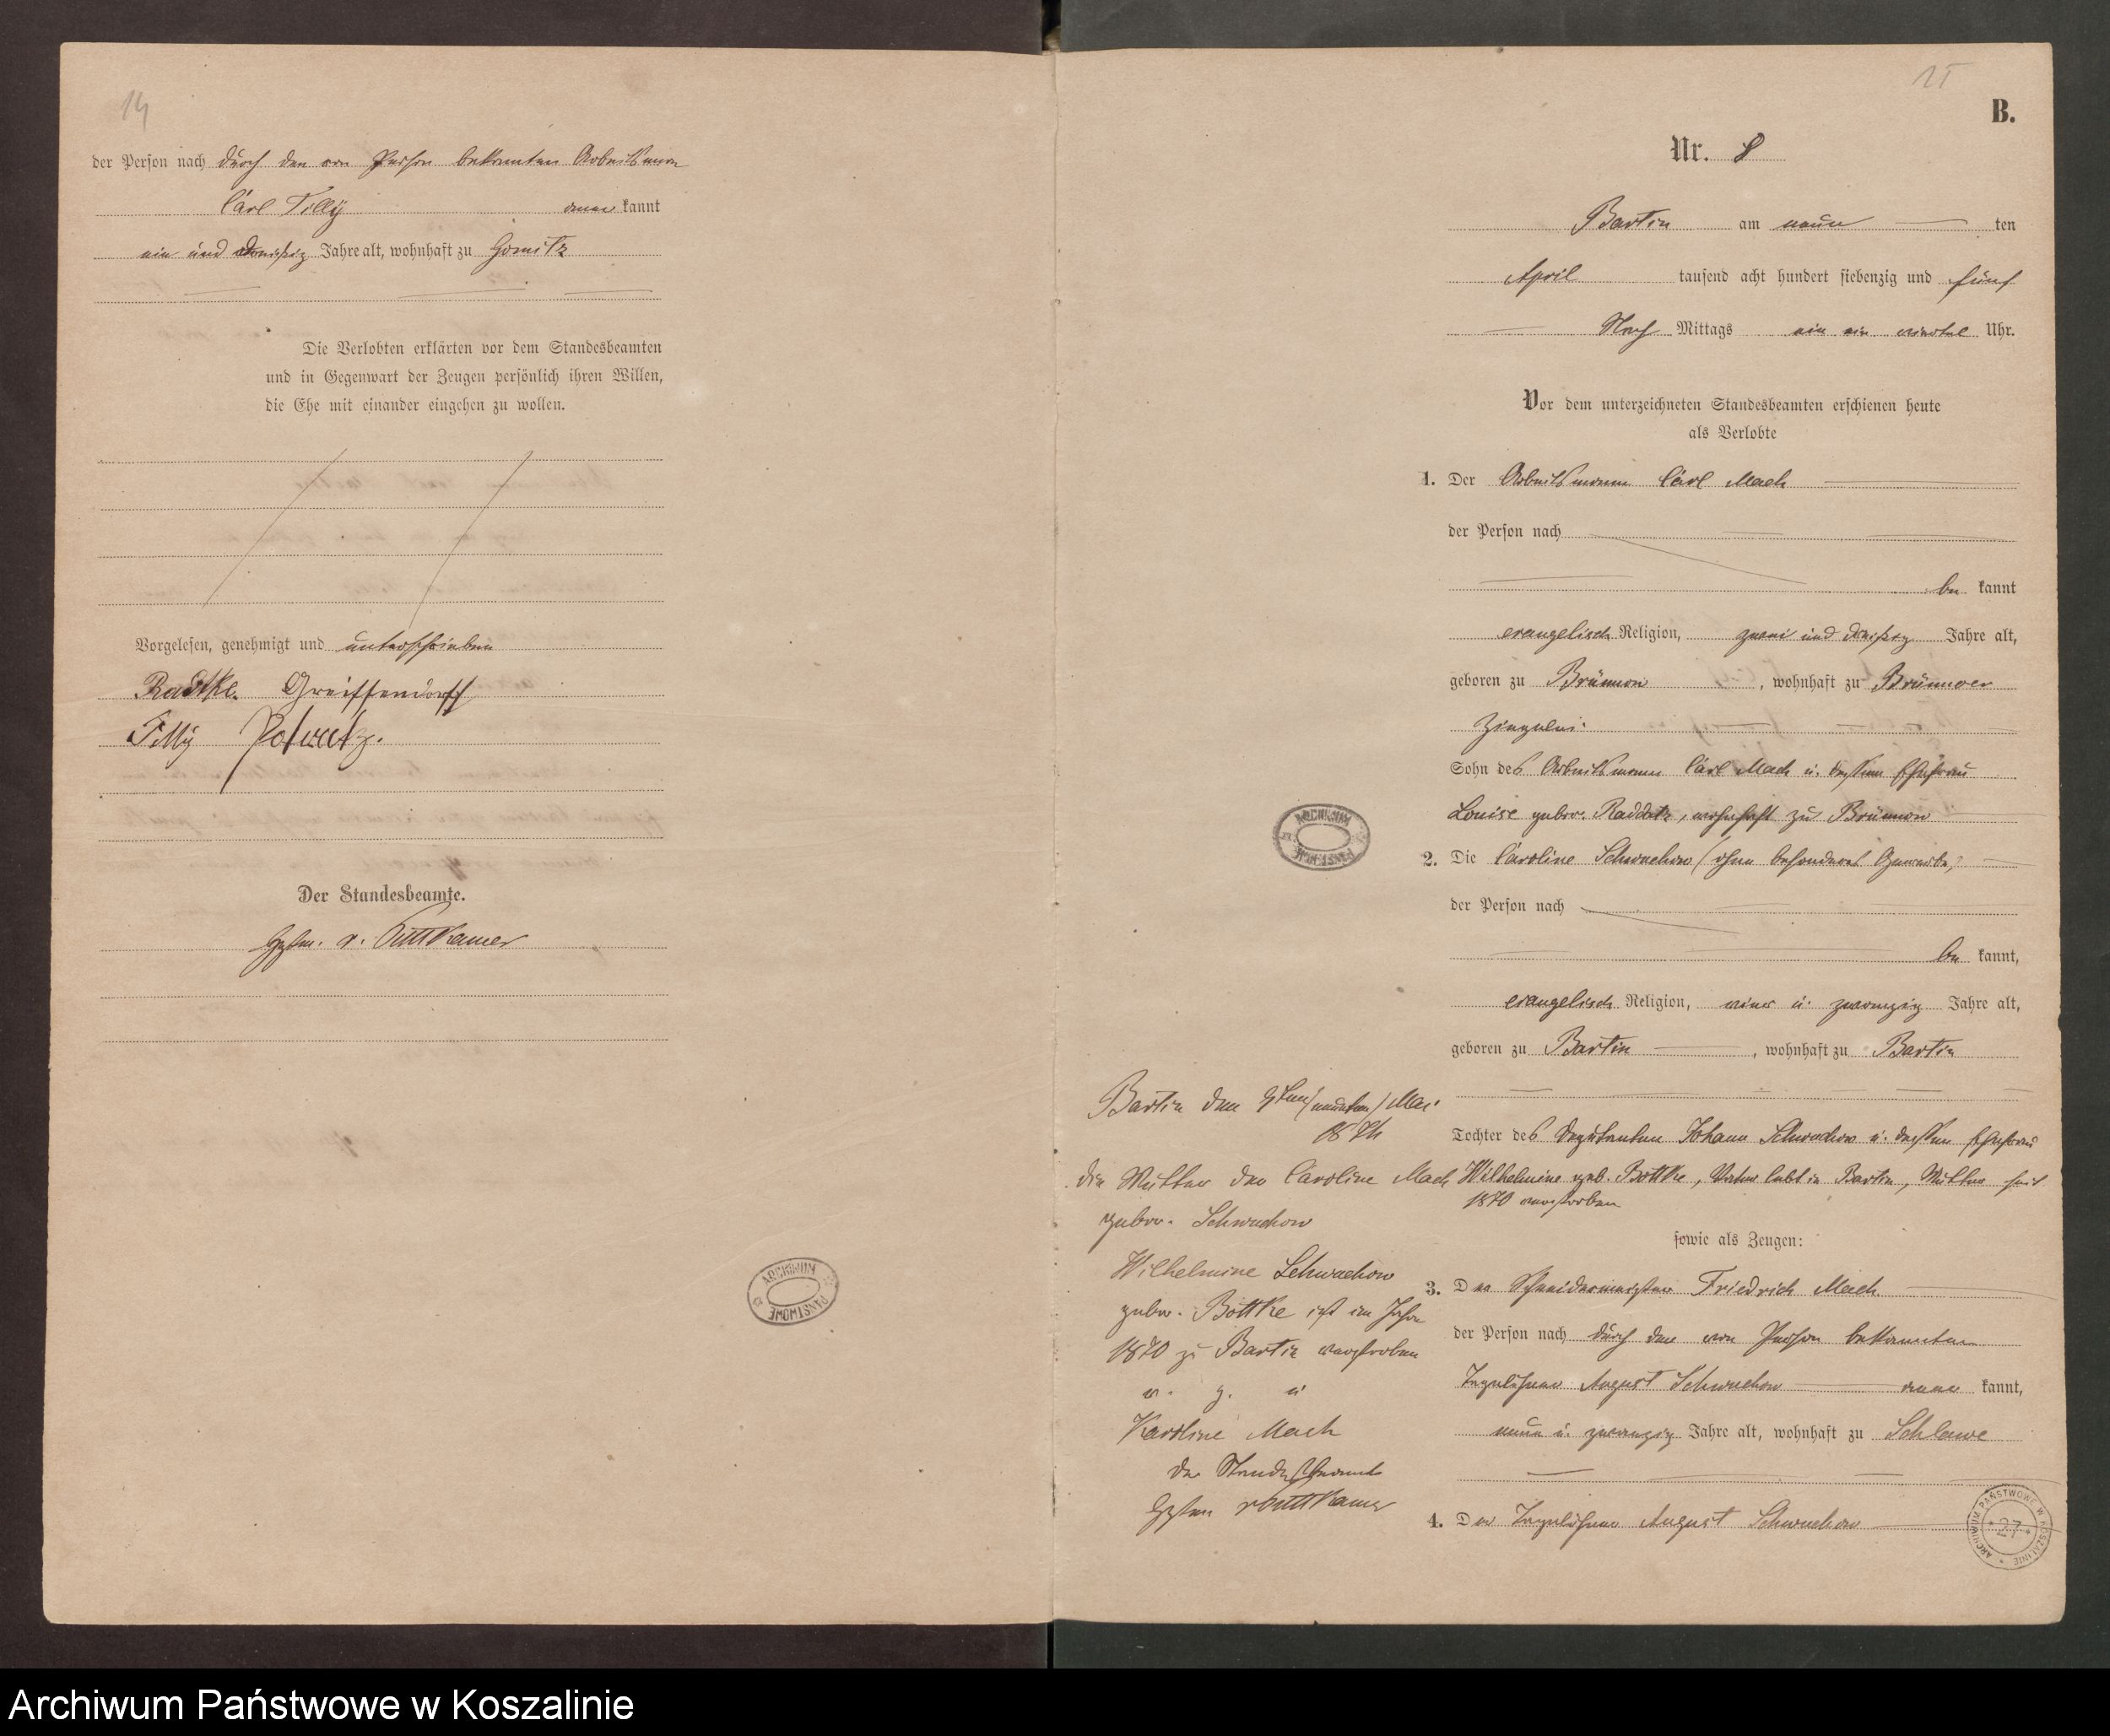 14
der Person nach durch den von Person bekannten Arbeitsmann
Carl Tilly aner kannt
ein und dreißig Jahre alt, wohnhaft zu Gomitz
Die Verlobten erklärten vor dem Standesbeamten
und in Gegenwart der Zeugen persönlich ihren Willen,
die Ehe mit einander eingehen zu wollen.
Vorgelesen, genehmigt und unterschrieben
Radtke. Greiffendorff
Tilly
Der Standesbeamte.
v. Puttkamer
ARCHIWUM PAŃSTWOWE
15
B.
Nr. 8
Bartin am neun ten
April tausend acht hundert siebenzig und fünf
Nach Mittags ein ein viertel Uhr.
Vor dem unterzeichneten Standesbeamten erschienen heute
als Verlobte
1. Der Arbeitsmann Carl Mach
der Person nach
be kannt
evangelisch Religion, zwei und dreißig Jahre alt,
geboren zu Brünnow, wohnhaft zu Brünnower
Ziegelei.
Sohn des Arbeitsmann Carl Mach u. dessen Ehefrau
Louise gebor. Raddatz, wohnhaft zu Brünnow
2. Die Caroline Schwuchow (ohne besonderes Gewerbe)
der Person nach
be kannt,
evangelisch Religion, einer u. zwanzig Jahre alt,
geboren zu Bartin, wohnhaft zu Bartin
Tochter des Deputanten Johann Schwuchow u. dessen Ehefrau
Wilhelmine geb. Bottke, Vater lebt in Bartin, Mutter seit
1870 verstorben
sowie als Zeugen:
3. Der Schneidermeister Friedrich Mach
der Person nach durch den von Person bekannten
August Schwuchow aner kannt,
neun u. zwanzig Jahre alt, wohnhaft zu Schlawe
4. Der August Schwuchow
Bartin den 9ten (neunten) Mai
die Mutter der Caroline Mach
gebor. Schwuchow
Wilhelmine Schwuchow
gebor. Bottke ist im Jahre
1870 zu Bartin verstorben
v. g. u
Karoline Mach
Der Standesbeamte
v Puttkamer
ARCHIWUM PAŃSTWOWE
ARCHIWUM PAŃSTWOWE W KOSZALINIE
27
Archiwum Państwowe w Koszalinie